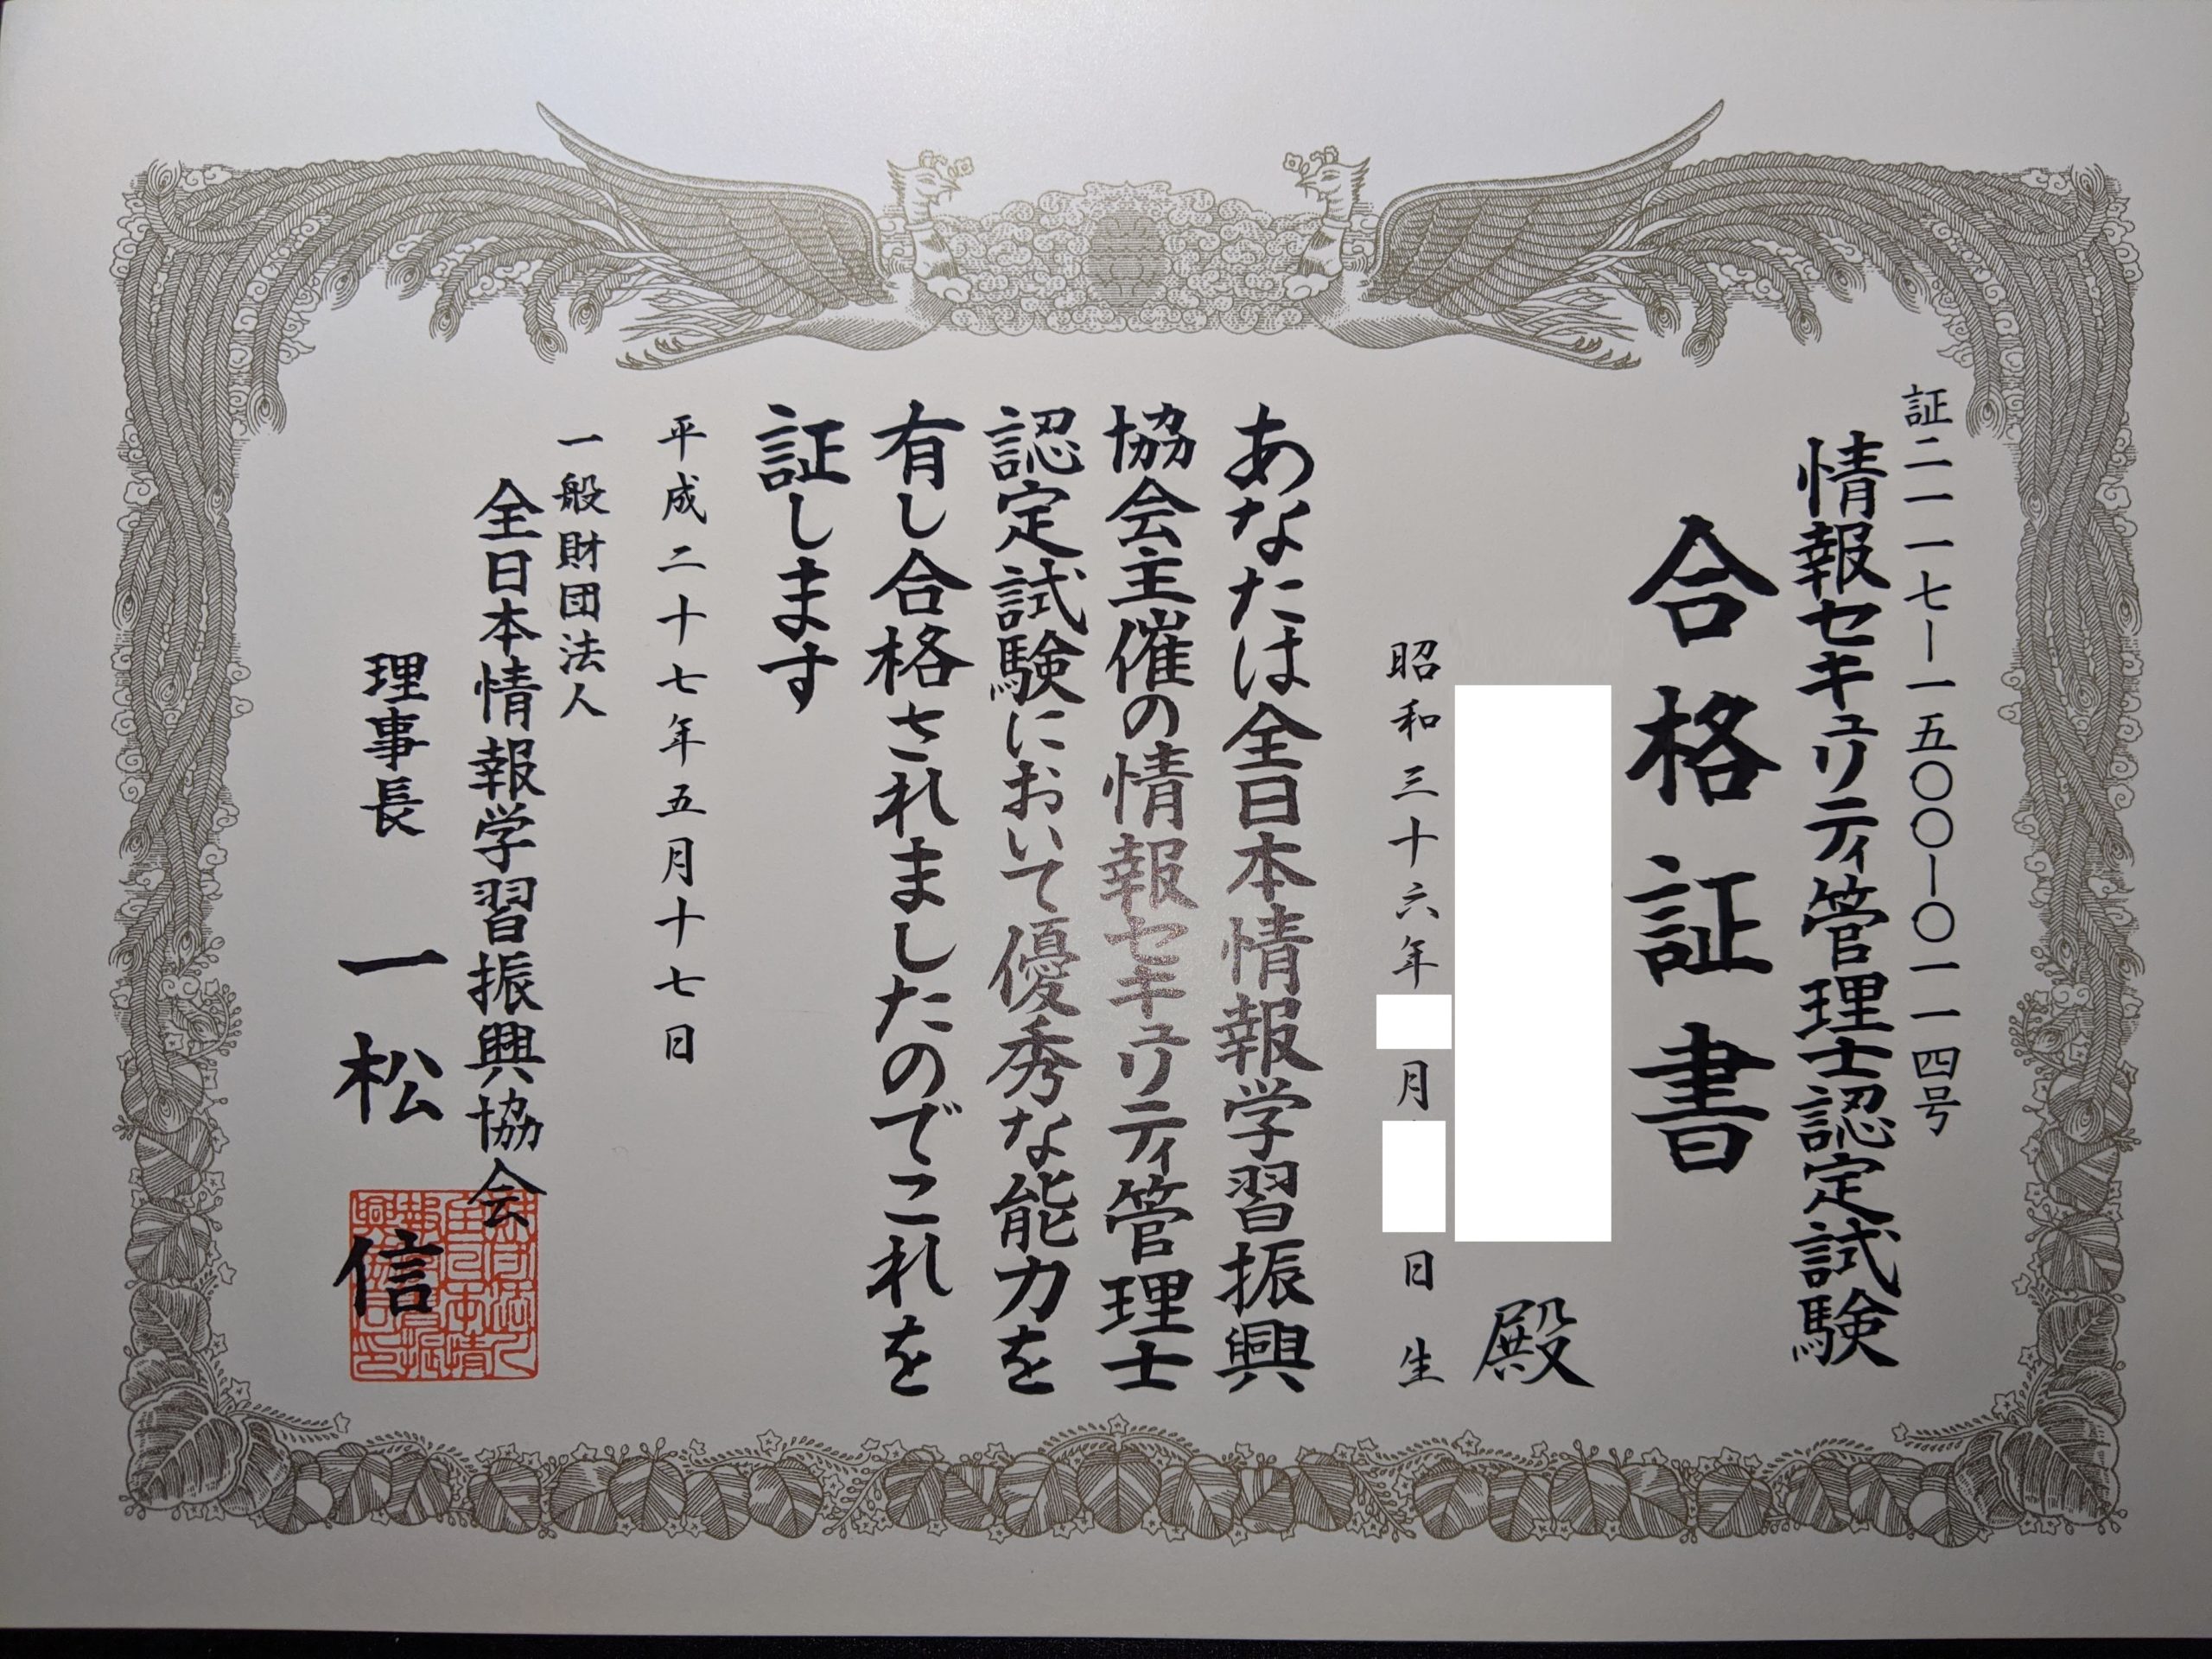 証二一一七ー一五〇〇ー〇一一四号
情報セキュリティ管理士認定試験
合格証書
殿
昭和三十六年 月 日生
あなたは全日本情報学習振興
協会主催の情報セキュリティ管理士
認定試験において優秀な能力を
有し合格されましたのでこれを
証します
平成二十七年五月十七日
一般財団法人
全日本情報学習振興協会
理事長 一松信